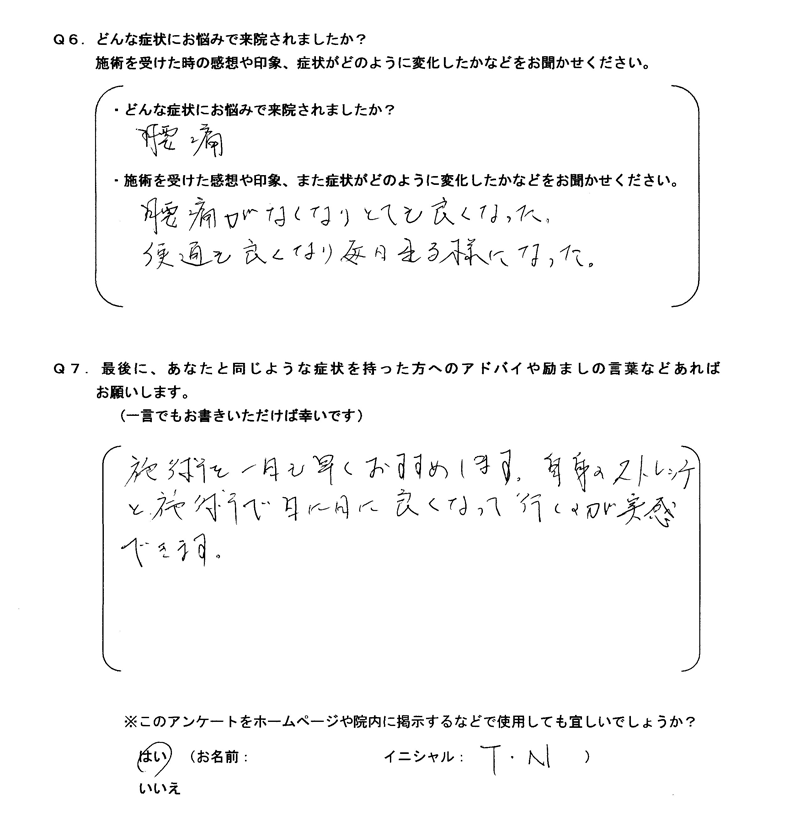 Q6．どんな症状にお悩みで来院されましたか？
施術を受けた時の感想や印象、症状がどのように変化したかなどをお聞かせください。
・どんな症状にお悩みで来院されましたか？
腰痛
・施術を受けた感想や印象、また症状がどのように変化したかなどをお聞かせください。
腰痛がなくなりとても良くなった。
便通も良くなり毎日出る様になった。
Q7．最後に、あなたと同じような症状を持った方へのアドバイや励ましの言葉などあれば
お願いします。
（一言でもお書きいただけば幸いです）
施術を一日も早くおすすめします。自身のストレッチ
と施術で日に日に良くなって行くのが実感
できます。
※このアンケートをホームページや院内に掲示するなどで使用しても宜しいでしょうか？
はい （お名前： イニシャル： T・N ）
いいえ